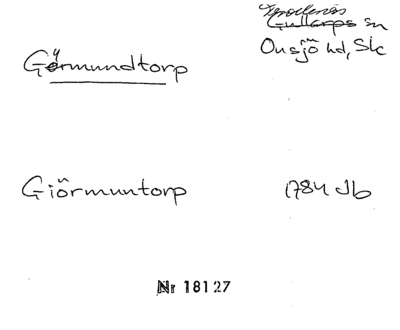 Görmundtorp
Gullarps sn
Onsjö hd, Sk
Giörmuntorp
1784 Jb
Nr 18127